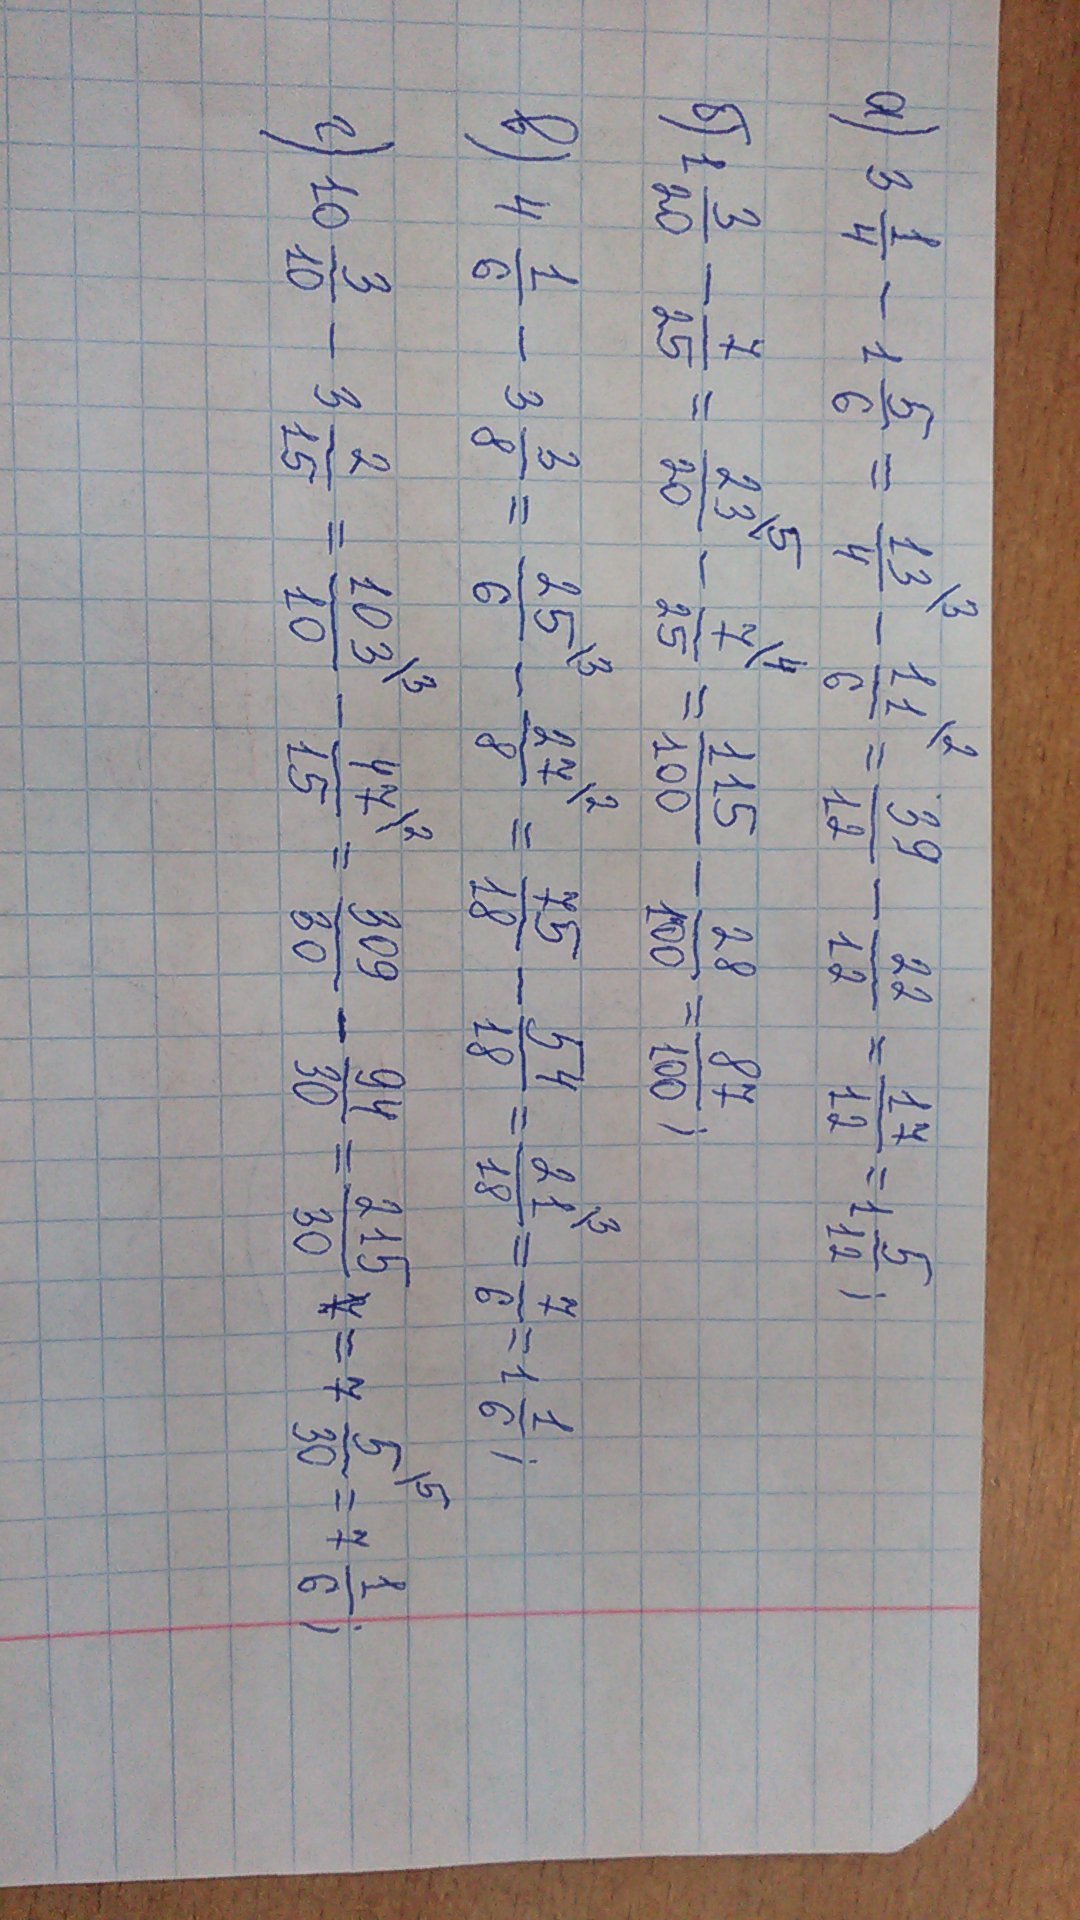 а) 3 1/4 - 1 5/6 = 13/4 \3 - 11/6 \2 = 39/12 - 22/12 = 17/12 = 1 5/12;
б) 1 3/20 - 7/25 = 23/20 \5 - 7/25 \4 = 115/100 - 28/100 = 87/100;
в) 4 1/6 - 3 3/8 = 25/6 \3 - 27/8 \2 = 75/18 - 54/18 = 21/18 \3 = 7/6 = 1 1/6;
г) 10 3/10 - 3 2/15 = 103/10 \3 - 47/15 \2 = 309/30 - 94/30 = 215/30 = 7 5/30 \5 = 7 1/6;